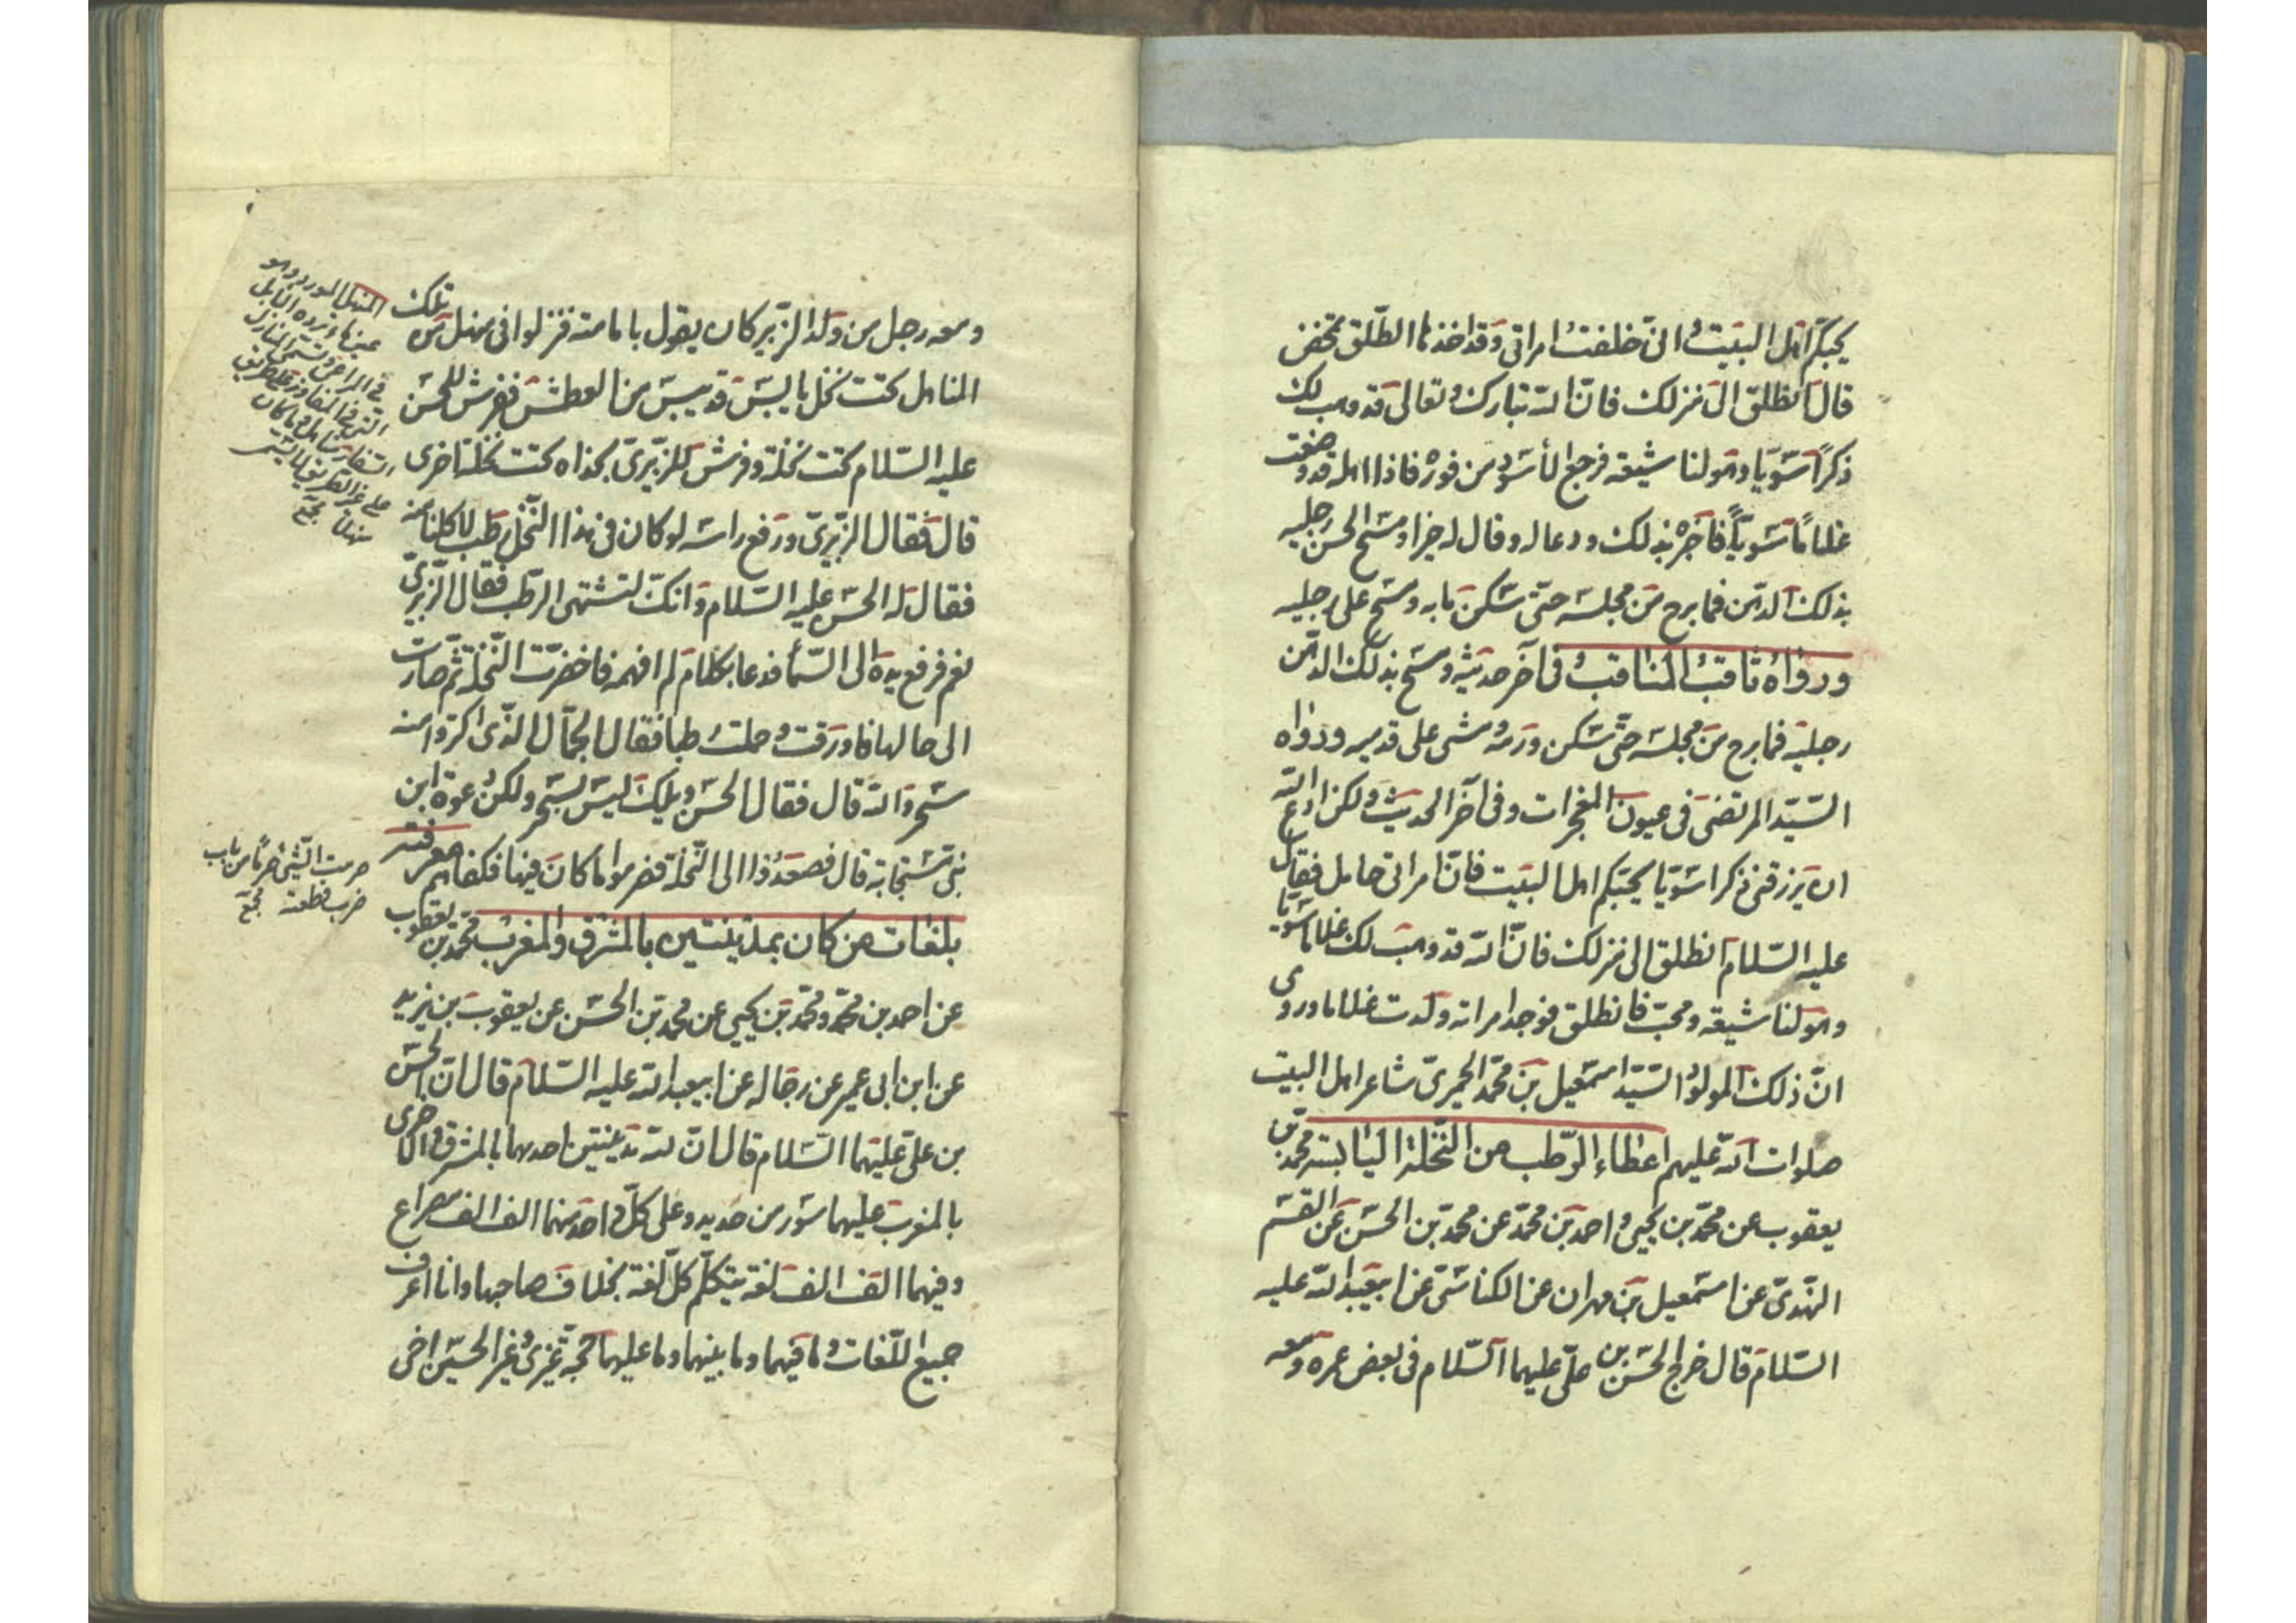 يحبّكم اهل البيت انّى خلفت امراتى وقد اخذها الطّلق تمخض
قال انطلق الى منزلك فانّ الله تبارك وتعالى قد وهب لك
ذكرًا سويّا وهو لنا شيعة فرجع الأسود من فوره فاذا اهله قد وضعت
غلامًا سويّاً فاخبره بذلك ودعا له وقال له خيرا ومسح الحسن رجليه
بذلك الدّهن فما برح من مجلسه حتّى سكن ما به ومسح على رجليه
ورواه ثاقب المناقب فى آخر حديثه ومسح بذلك الدّهن
رجليه فما برح من مجلسه حتّى سكن ورمه ومشى على قدميه ورواه
السّيّد المرتضى فى عيون المعجزات وفى آخر الحديث ولكن ادع الله
ان يرزقنى ذكرا سويّا يحبّكم اهل البيت فانّ امراتى حامل فقال
عليه السّلام انطلق الى منزلك فانّ الله قد وهب لك غلاما سويّا
وهو لنا شيعة ومحبّ فانطلق فوجد امراته ولدت غلاما وروى
انّ ذلك المولود السّيّد اسمعيل بن محمّد الحميرىّ شاعر اهل البيت
صلوات الله عليهم اعطاء الرّطب من النّخلة اليابسة محمّد بن
يعقوب عن محمّد بن يحيى واحمد بن محمّد عن محمّد بن الحسن عن القسم
النّهدىّ عن اسمعيل بن مهران عن الكناسىّ عن ابيعبد الله عليه
السّلام قال خرج الحسن بن علىّ عليهما السّلام فى بعض عمره ومعه
ومعه رجل من ولد الزّبير كان يقول بامامته فنزلوا فى منهل من تلك
المناهل تحت نخل يابس قد يبس من العطش ففرش للحسن
عليه السّلام تحت نخلة وفرش للزّبيرىّ بحذاه تحت نخلة اخرى
قال فقال الزّبيرىّ ورفع راسه لو كان فى هذا النّخل رطب لاكلنا منه
فقال له الحسن عليه السّلام وانّك لتشتهى الرّطب فقال الزّبيرىّ
نعم فرفع يده الى السّمأ فدعا بكلام لم افهمه فاخضرّت النّخلة ثمّ صارت
الى حالها فاورقت وحملت رطبا فقال الجمّال الّذى اكتروا منه
سحر والله قال فقال الحسن ويلك ليس بسحر ولكن دعوة ابن
نبىّ مستجابة قال فصعدوا الى النّخلة فصرموا ما كان فيها فكفاهم معرفته
بلغات من كان بمدينتين بالمشرق والمغرب محمّد بن يعقوب
عن احمد بن محمّد ومحمّد بن يحيى عن محمّد بن الحسن عن يعقوب بن يزيد
عن ابن ابى عمير عن رجاله عن ابيعبد الله عليه السّلام قال انّ الحسن
بن علىّ عليهما السّلام قال انّ لله مدينتين احدهما بالمشرق والاخرى
بالمغرب عليهما سور من حديد وعلى كلّ واحد منهما الف الف مصراع
وفيهما الف الف لغة يتكلّم كلّ لغة بخلاف صاحبها وانا اعرف
جميع اللّغات وما فيهما وما بينهما وما عليهما حجّة غيرى وغير الحسين اخى
المنهل المورد وهو
عين ماء ترده الابل
فى المراعى وتسمى المنازل
التى فى المفاوز على طريق
السفار مناهل وما كان
على غير الطريق لا يسمى
منهلا مجمع
صرمت الشّئ صرمًا من باب
ضرب قطعته مجمع